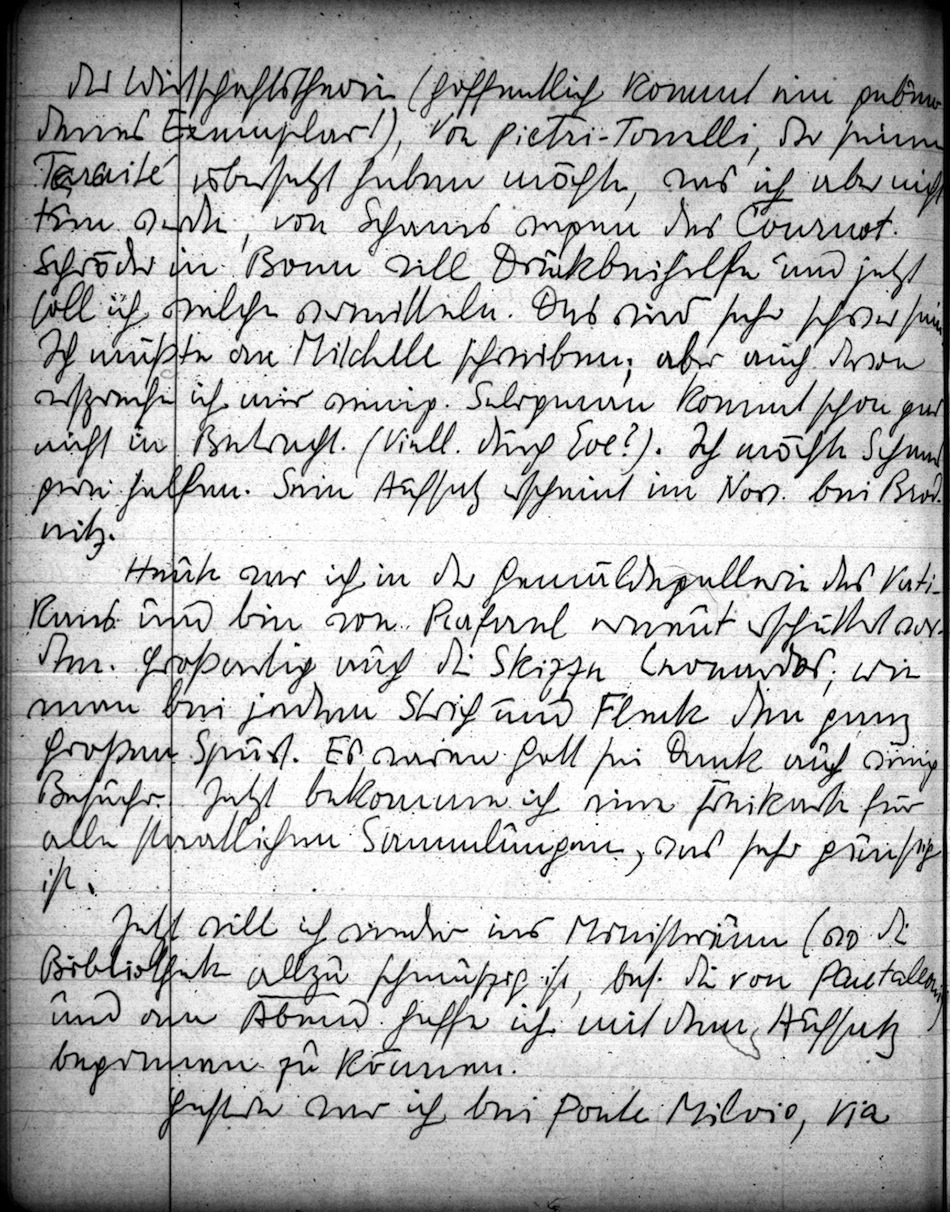 der Wirtschaftstheorie (hoffentlich kommt ein gebun-
denes Exemplar!), von Pietri-Tonelli, der seinen
Traité übersetzt haben möchte, was ich aber nicht
tun werde, von Schams wegen des Cournot.
Schröder in Bonn will Druckbeihilfe und jetzt
soll ich welche vermitteln. Das wird sehr schwer sein
Ich müsste an Mitchell schreiben; aber auch davon
verspreche ich mir wenig. Seligman kommt schon gar
nicht in Betracht. (Viell. durch Eve?). Ich möchte Schams
gern helfen. Sein Aufsatz erscheint im Nov. bei Brod-
nitz.
Heute war ich in der Gemäldegallerie des Vati-
kans und bin von Rafael erneut erschüttert wor-
den. Großartig auch die Skizze Leonardos; wie
man bei jedem Strich und Fleck den ganz
Großen spürt. Es waren Gott sei Dank auch wenig
Besucher. Jetzt bekomme ich eine Freikarte für
alle staatlichen Sammlungen, was sehr günstig
ist.
Jetzt will ich wieder ins Ministerium (wo die
Bibliothek allzu schmutzig ist, bes. die von Pantaleoni)
und am Abend hoffe ich mit dem Aufsatz
beginnen zu können.
Gestern war ich bei Ponte Milvio, Via